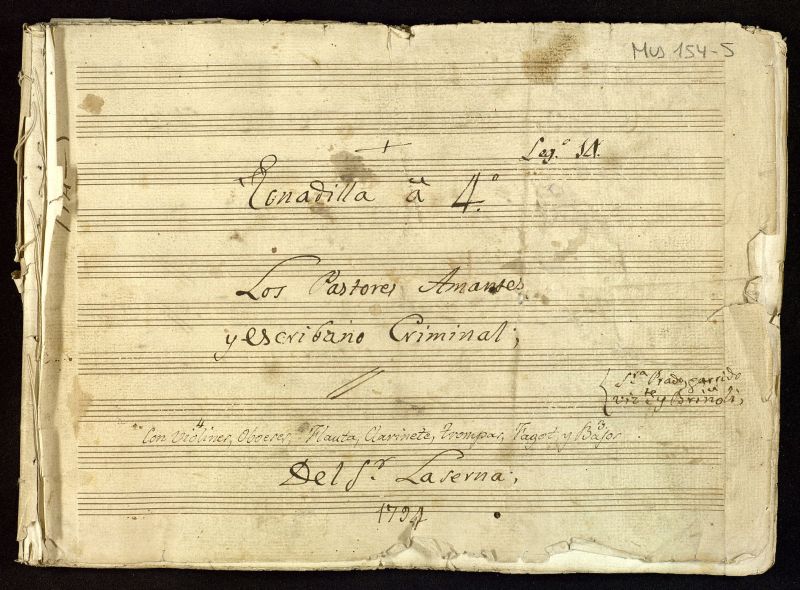 Mus 154-5
Leg.º 14.
Tonadilla à 4.º
Los Pastores Amantes
y escribano Criminal;
Sra Prado, garrido
vizte y Briñoli,
Con Violines, Oboeses, Flauta, Clarinete, trompas, Fagot, y Bajos
Del Sr. Laserna;
1794